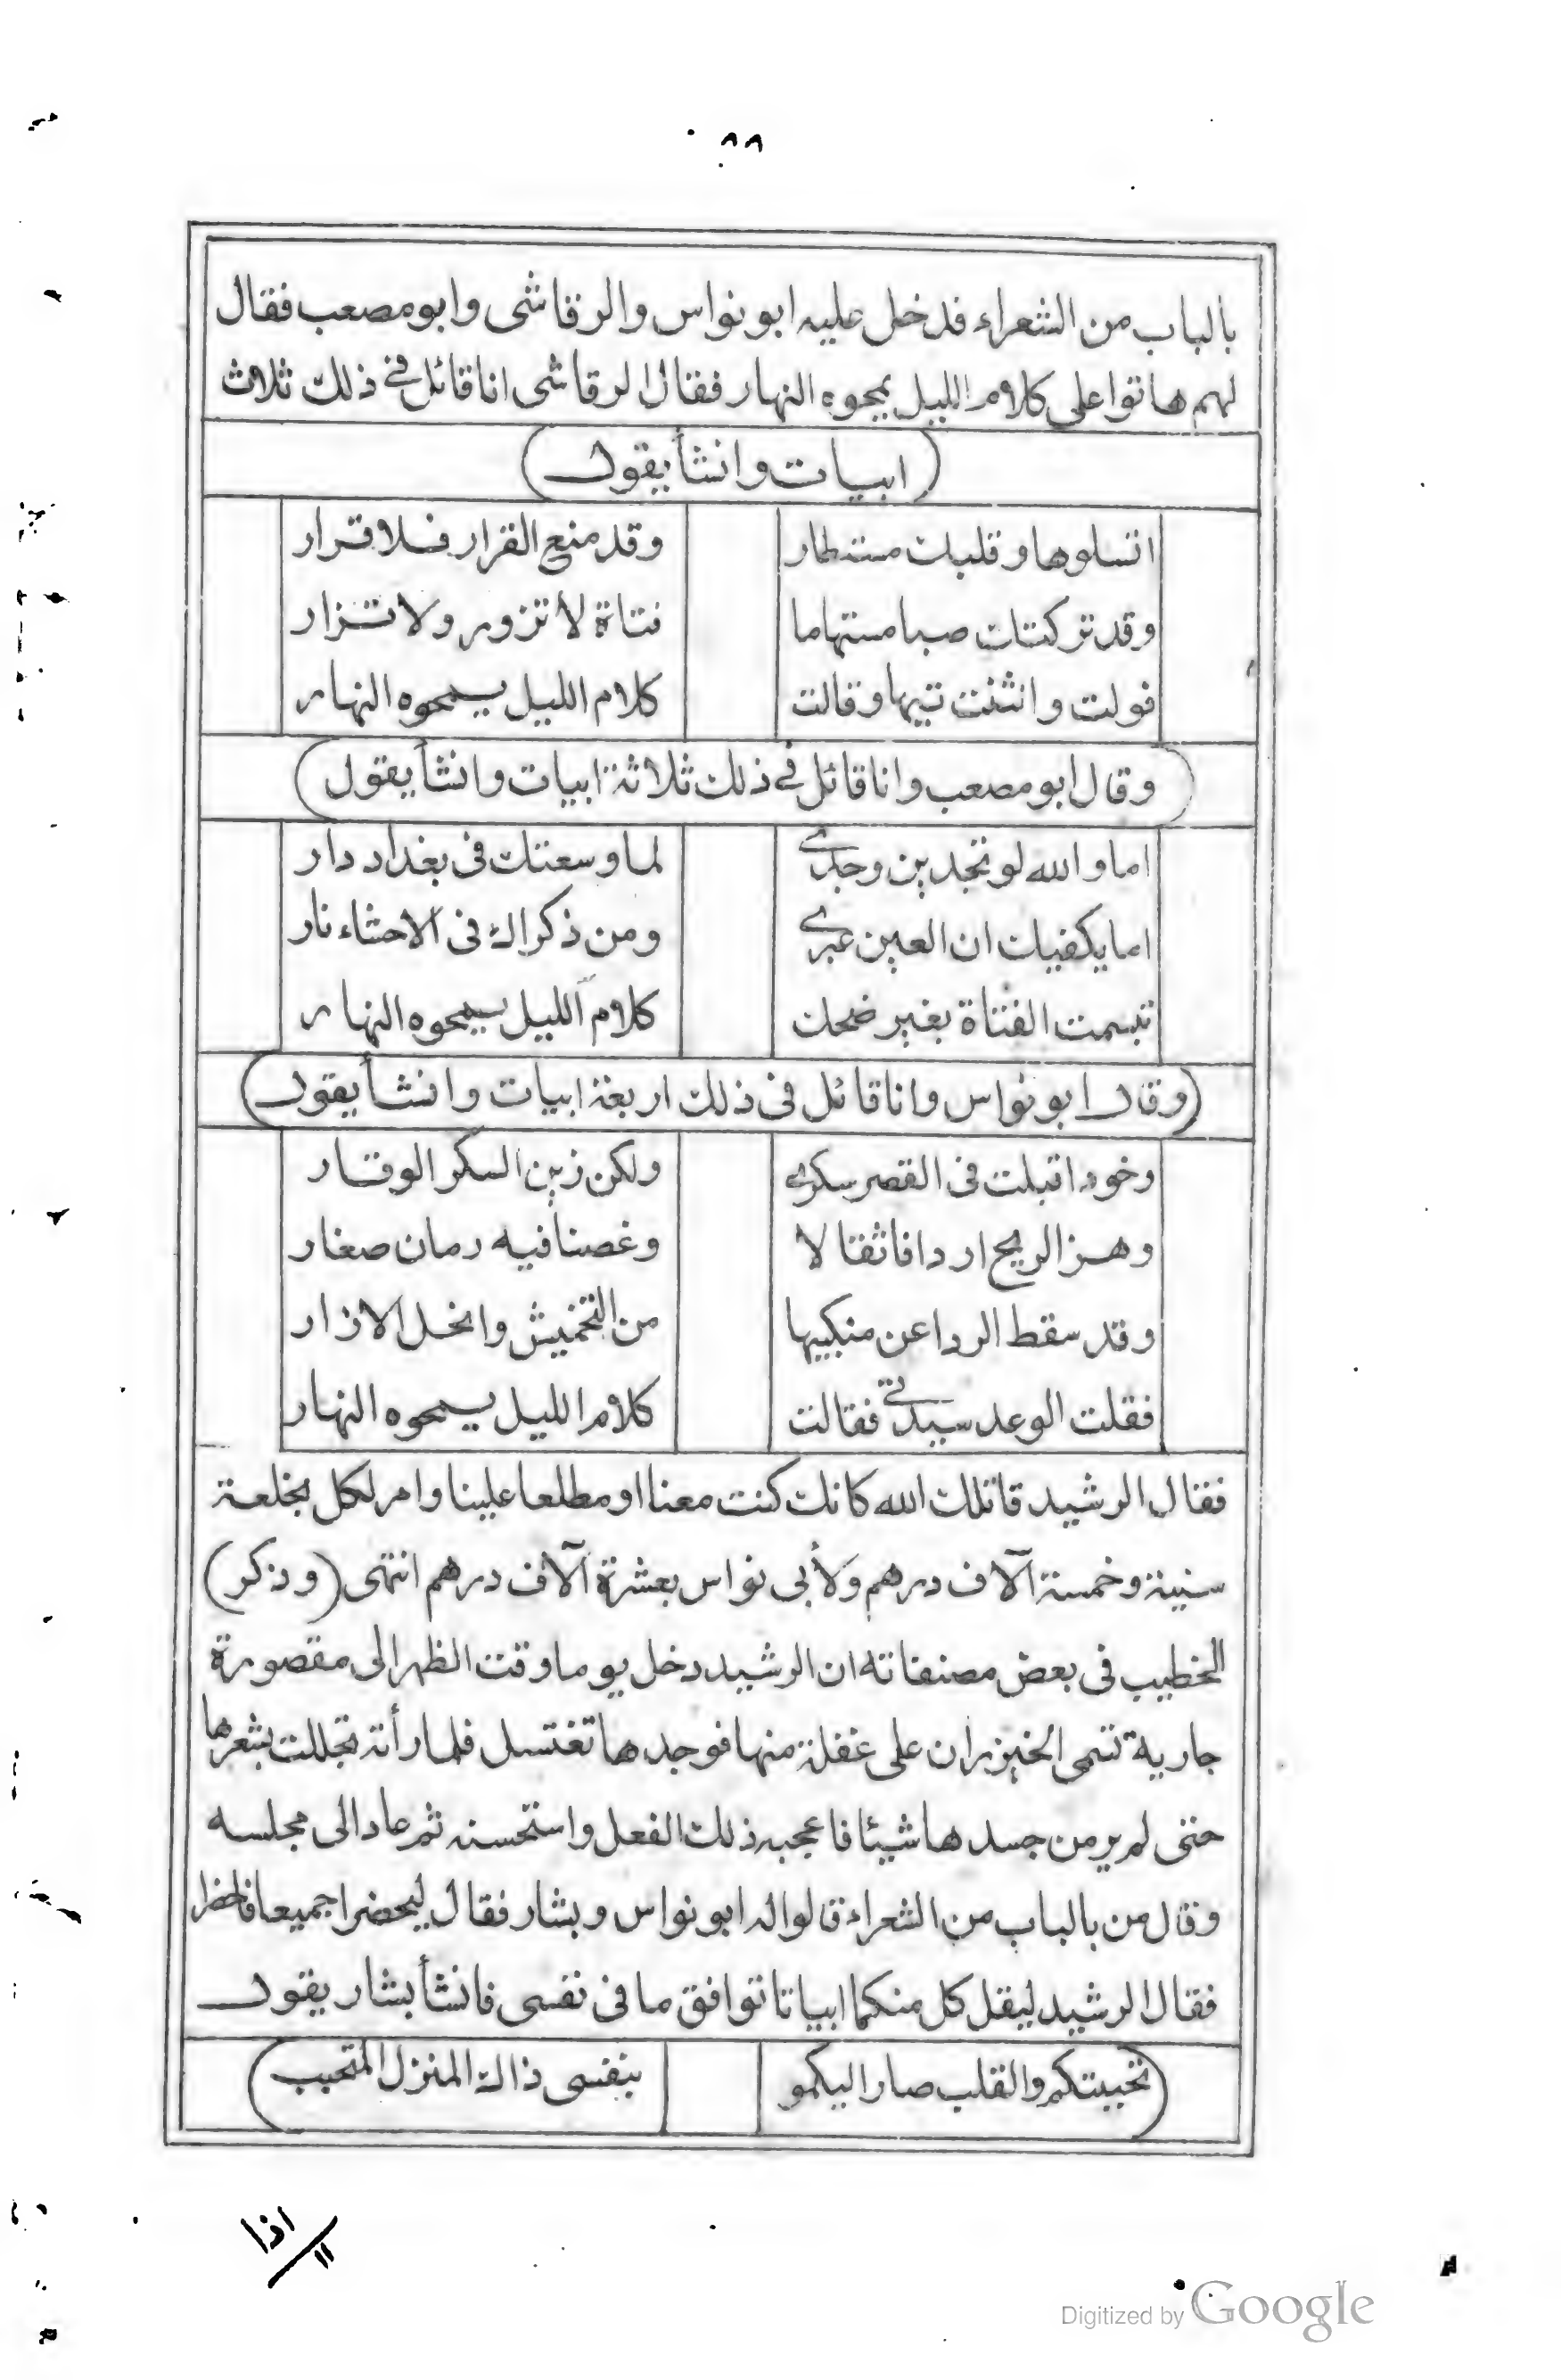 ٨٨
بالباب من الشعراء فدخل عليه ابو نواس والرقاشى وابو مصعب فقال
لهم هاتوا على كلام الليل يمحوه النهار فقال الرقاشى انا قائل فى ذلك ثلاث
(ابيات وانشأ يقول)
اتسلوها وقلبك مستطار وقد منع القرار فلا قرار
وقد تركتك صبا مستهاما فتاة لا تزور ولا تزار
فولت وانثنت تيها وقالت كلام الليل يمحوه النهار
(وقال ابو مصعب وانا قائل فى ذلك ثلاثة ابيات وانشأ يقول)
اما والله لو تجدين وجدى لما وسعتك فى بغداد دار
اما يكفيك ان العين عبرى ومن ذكراك فى الاحشاء نار
تبسمت الفتاة بغير ضحك كلام الليل يمحوه النهار
(وقال ابو نواس وانا قائل فى ذلك اربعة ابيات وانشأ يقول)
وخود اقبلت فى القصر سكرى ولكن زين السكر الوقار
وهز الريح اردافا ثقالا وغصنا فيه رمان صغار
وقد سقط الردا عن منكبيها من التخميش وانحل الازار
فقلت الوعد سيدتى فقالت كلام الليل يمحوه النهار
فقال الرشيد قاتلك الله كانك كنت معنا او مطلعا علينا وامر لكل بخلعة
سنية وخمسة آلاف درهم ولأبى نواس بعشرة آلاف درهم انتهى (وذكر)
الخطيب فى بعض مصنفاته ان الرشيد دخل يوما وقت الظهر الى مقصورة
جارية تسمى الخيزران على غفلة منها فوجدها تغتسل فلما رأته تجللت بشعرها
حتى لم ير من جسدها شيئا فاعجبه ذلك الفعل واستحسنه ثم عاد الى مجلسه
وقال من بالباب من الشعراء قالوا له ابو نواس وبشار فقال ليحضرا جميعا فاحضرا
فقال الرشيد ليقل كل منكما ابياتا توافق ما فى نفسى فانشأ بشار يقول
(تحببتكم والقلب صار اليكمو بنفسى ذاك المنزل المتحبب)
اذا
١١
Digitized by Google